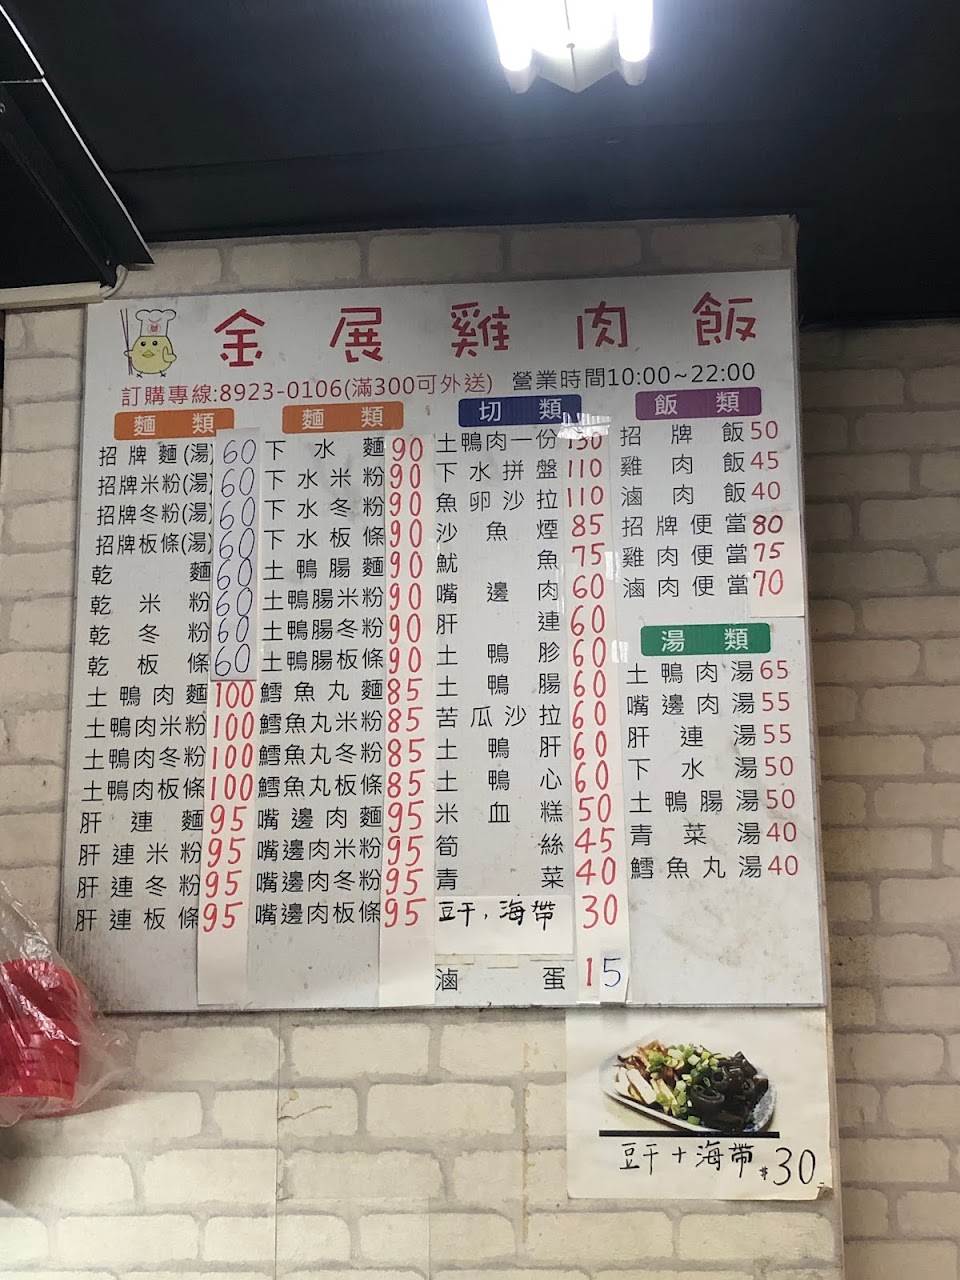 金展雞肉飯
訂購專線:8923-0106(滿300可外送) 營業時間10:00~22:00
麵類
招牌麵(湯) 60
招牌米粉(湯) 60
招牌冬粉(湯) 60
招牌板條(湯) 60
乾麵 60
乾米粉 60
乾冬粉 60
乾板條 60
土鴨肉麵 100
土鴨肉米粉 100
土鴨肉冬粉 100
土鴨肉板條 100
肝連麵 95
肝連米粉 95
肝連冬粉 95
肝連板條 95
麵類
下水麵 90
下水米粉 90
下水冬粉 90
下水板條 90
土鴨腸麵 90
土鴨腸米粉 90
土鴨腸冬粉 90
土鴨腸板條 90
鱈魚丸麵 85
鱈魚丸米粉 85
鱈魚丸冬粉 85
鱈魚丸板條 85
嘴邊肉麵 95
嘴邊肉米粉 95
嘴邊肉冬粉 95
嘴邊肉板條 95
切類
土鴨肉一份
下水拼盤 110
魚卵沙拉 110
沙魚煙 85
魷魚 75
嘴邊肉 60
肝連 60
土鴨胗 60
土鴨腸 60
苦瓜沙拉 60
土鴨肝 60
土鴨心 60
米血糕 50
筍絲 45
青菜 40
豆干,海帶 30
滷蛋 15
飯類
招牌飯 50
雞肉飯 45
滷肉飯 40
招牌便當 80
雞肉便當 75
滷肉便當 70
湯類
土鴨肉湯 65
嘴邊肉湯 55
肝連湯 55
下水湯 50
土鴨腸湯 50
青菜湯 40
鱈魚丸湯 40
豆干+海帶 $30